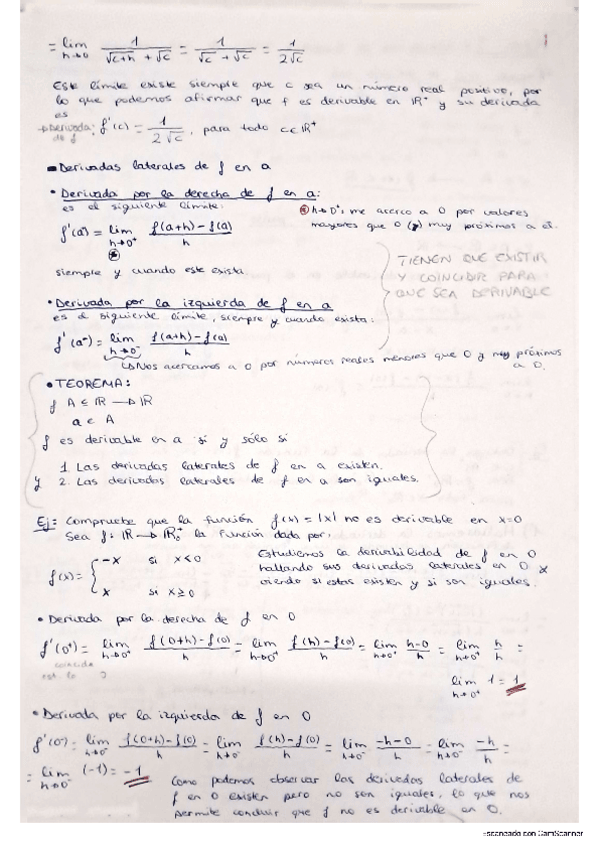 1
= lim h→0 1/(√(c+h) + √c) = 1/(√c + √c) = 1/(2√c)
Este límite existe siempre que c sea un número real positivo, por
lo que podemos afirmar que f es derivable en IR⁺ y su derivada
es
→ Derivada de f f'(c) = 1/(2√c), para todo c∈IR⁺
▬ Derivadas laterales de f en a
• Derivada por la derecha de f en a:
es el siguiente límite:
f'(a⁺) = lim h→0⁺ (f(a+h)-f(a))/h
siempre y cuando este exista.
h→0⁺: me acerco a 0 por valores
mayores que 0 (y) muy próximos a él.
TIENEN QUE EXISTIR
Y COINCIDIR PARA
QUE SEA DERIVABLE
• Derivada por la izquierda de f en a
es el siguiente límite, siempre y cuando exista:
f'(a⁻) = lim h→0⁻ (f(a+h)-f(a))/h
↳ Nos acercamos a 0 por números reales menores que 0 y muy próximos
a 0.
• TEOREMA:
f A ⊆ IR → IR
a ∈ A
f es derivable en a si y sólo si
1. Las derivadas laterales de f en a existen.
y 2. Las derivadas laterales de f en a son iguales.
Ej: Compruebe que la función f(x) = |x| no es derivable en x=0
Sea f: IR → IR₀⁺ la función dada por:
f(x) = { -x si x<0
x si x≥0
Estudiemos la derivabilidad de f en 0
hallando sus derivadas laterales en 0 y
viendo si estas existen y si son iguales.
• Derivada por la derecha de f en 0
f'(0⁺) = lim h→0⁺ (f(0+h)-f(0))/h = lim h→0⁺ (f(h)-f(0))/h = lim h→0⁺ (h-0)/h = lim h→0⁺ h/h =
coincide
lim h→0⁺ 1 = 1
• Derivada por la izquierda de f en 0
f'(0⁻) = lim h→0⁻ (f(0+h)-f(0))/h = lim h→0⁻ (f(h)-f(0))/h = lim h→0⁻ (-h-0)/h = lim h→0⁻ -h/h =
= lim h→0⁻ (-1) = -1
Como podemos observar las derivadas laterales de
f en 0 existen pero no son iguales, lo que nos
permite concluir que f no es derivable en 0.
Escaneado con CamScanner